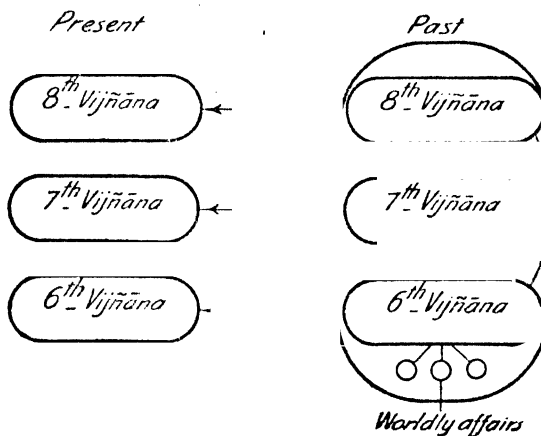 Present Past
8th Vijñāna 8th Vijñāna
7th Vijñāna 7th Vijñāna
6th Vijñāna 6th Vijñāna
Worldly affairs